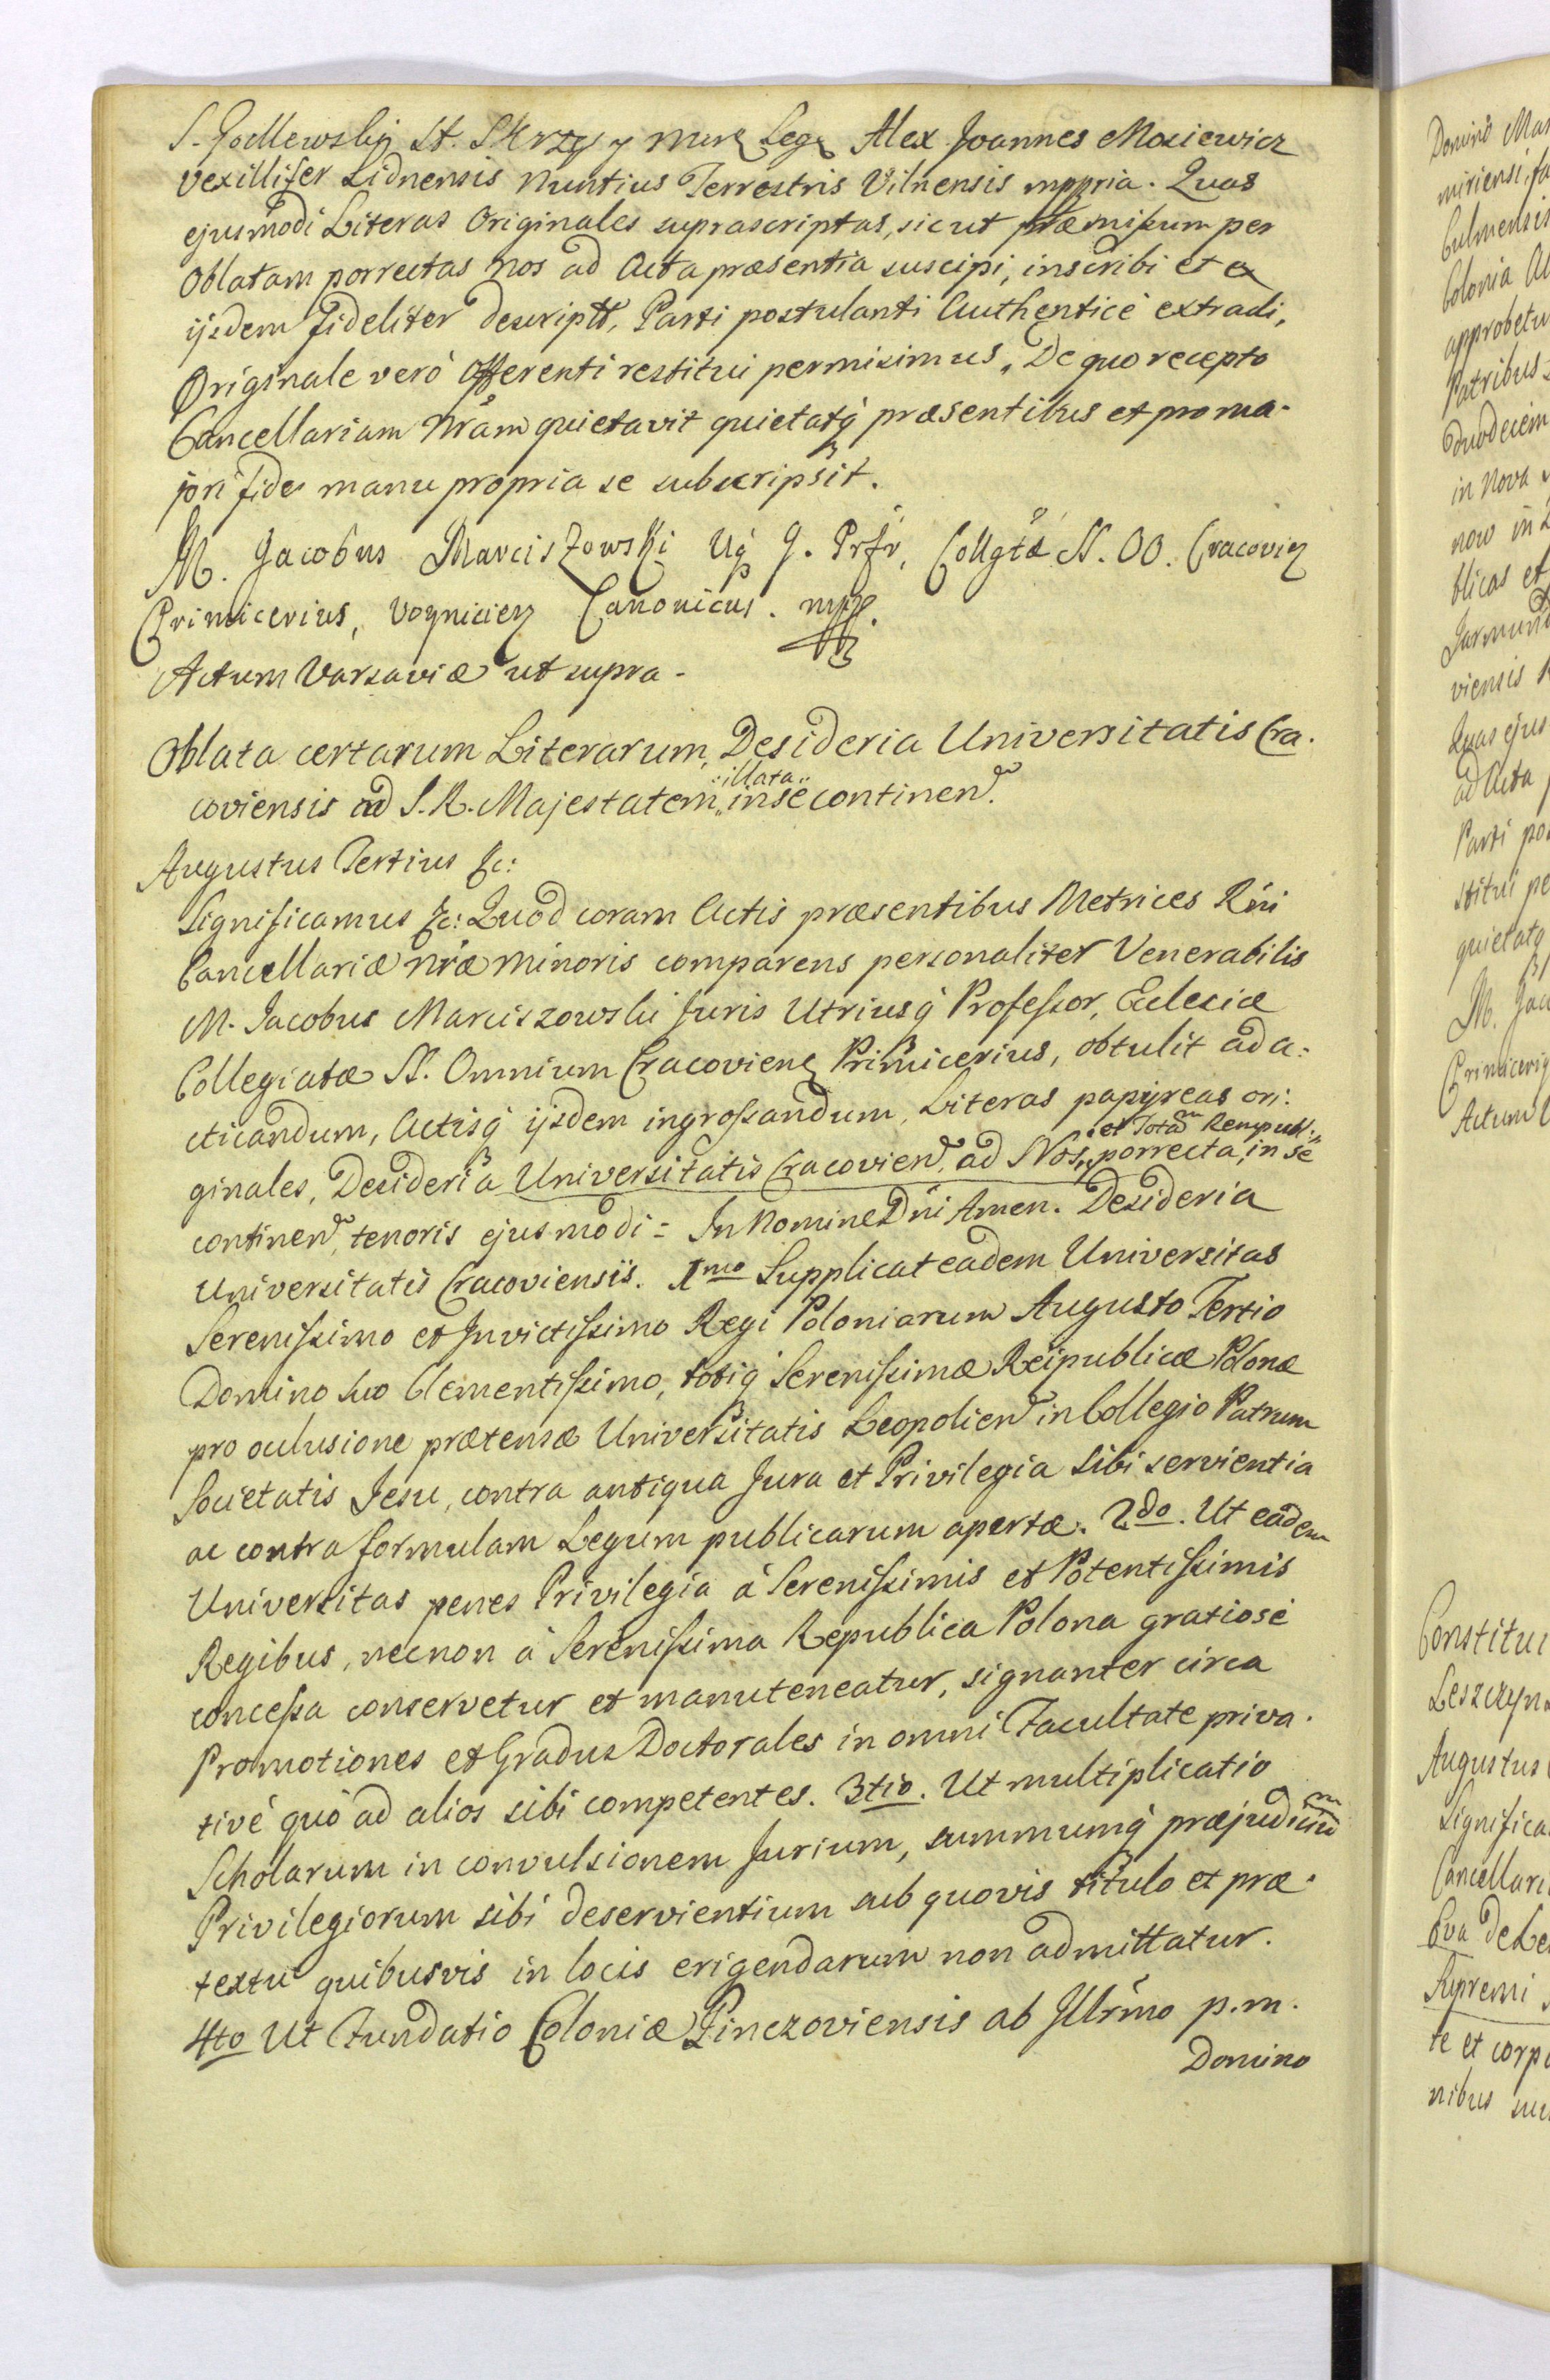 S. Godlewskij St. Skrzy y Alex Joannes Mosiewicz
Vexillifer Lidnensis Nuntius Terrestris Vilnensis mppria. Quas
ejusmodi Literas Originales suprascriptas, sicut præmissum per
Oblatam porrectas Nos ad Acta præsentia suscipi, inscribi et ex
ijsdem fideliter descriptt, Parti postulanti Authenticè extradi,
Originale verò Offerenti restitui permisimus, De quo recepto
Cancellariam Nram quietavit quietatq præsentibus et pro ma-
jori fide manu propria se subscripsit.
M. Jacobus Marciszowski Uq J. Prfr, Collgtæ SS. OO. Cracovien
Primicerius, Voyniciens Canonicus. mpp.
Actum Varsaviæ ut supra.
Oblata certarum Literarum, Desideria Universitatis Cra-
coviensis ad S. R. Majestatem illata in se continen.
Augustus Tertius &c:
Significamus &c: Quod coram Actis præsentibus Metrices Rni
Cancellariæ Nræ Minoris comparens personaliter Venerabilis
M. Jacobus Marciszowski Juris Utriusq Professor, Eclesiæ
Collegiatæ SS. Omnium Cracovien Primicerius, obtulit ad a-
cticandum, Actisq ijsdem ingrossandum, Literas papyreas ori-
ginales, Desideria Universitatis Cracovien. ad Nos, et Totam Rempubl: porrecta, in se
continen, tenoris ejusmodi = In Nomine Dni Amen. Desideria
Universitatis Cracoviensis. 1mo Supplicat eadem Universitas
Serenissimo et Invictissimo Regi Poloniarum Augusto Tertio
Domino suo Clementissimo, totiq Serenissimæ Reipublicæ Polonæ
pro oclusione prætensæ Universitatis Leopolien in Collegio Patrum
Societatis Jesu, contra antiqua Jura et Privilegia sibi servientia
ac contra formulam Legum publicarum apertæ. 2do. Ut eadem
Universitas penes Privilegia à Serenissimis et Potentissimis
Regibus, necnon à Serenissima Republica Polona gratiosè
concessa conservetur et manuteneatur, signanter circa
Promotiones et Gradus Doctorales in omni Facultate priva-
tivè quò ad alios sibi competentes. 3tio. Ut multiplicatio
Scholarum in convulsionem Jurium, summumq præjudicium
Privilegiorum sibi deservientium sub quovis titulo et præ-
textu quibusvis in locis erigendarum non admittatur.
4to Ut Fundatio Coloniæ Pinczoviensis ab Illrmo p.m.
Domino